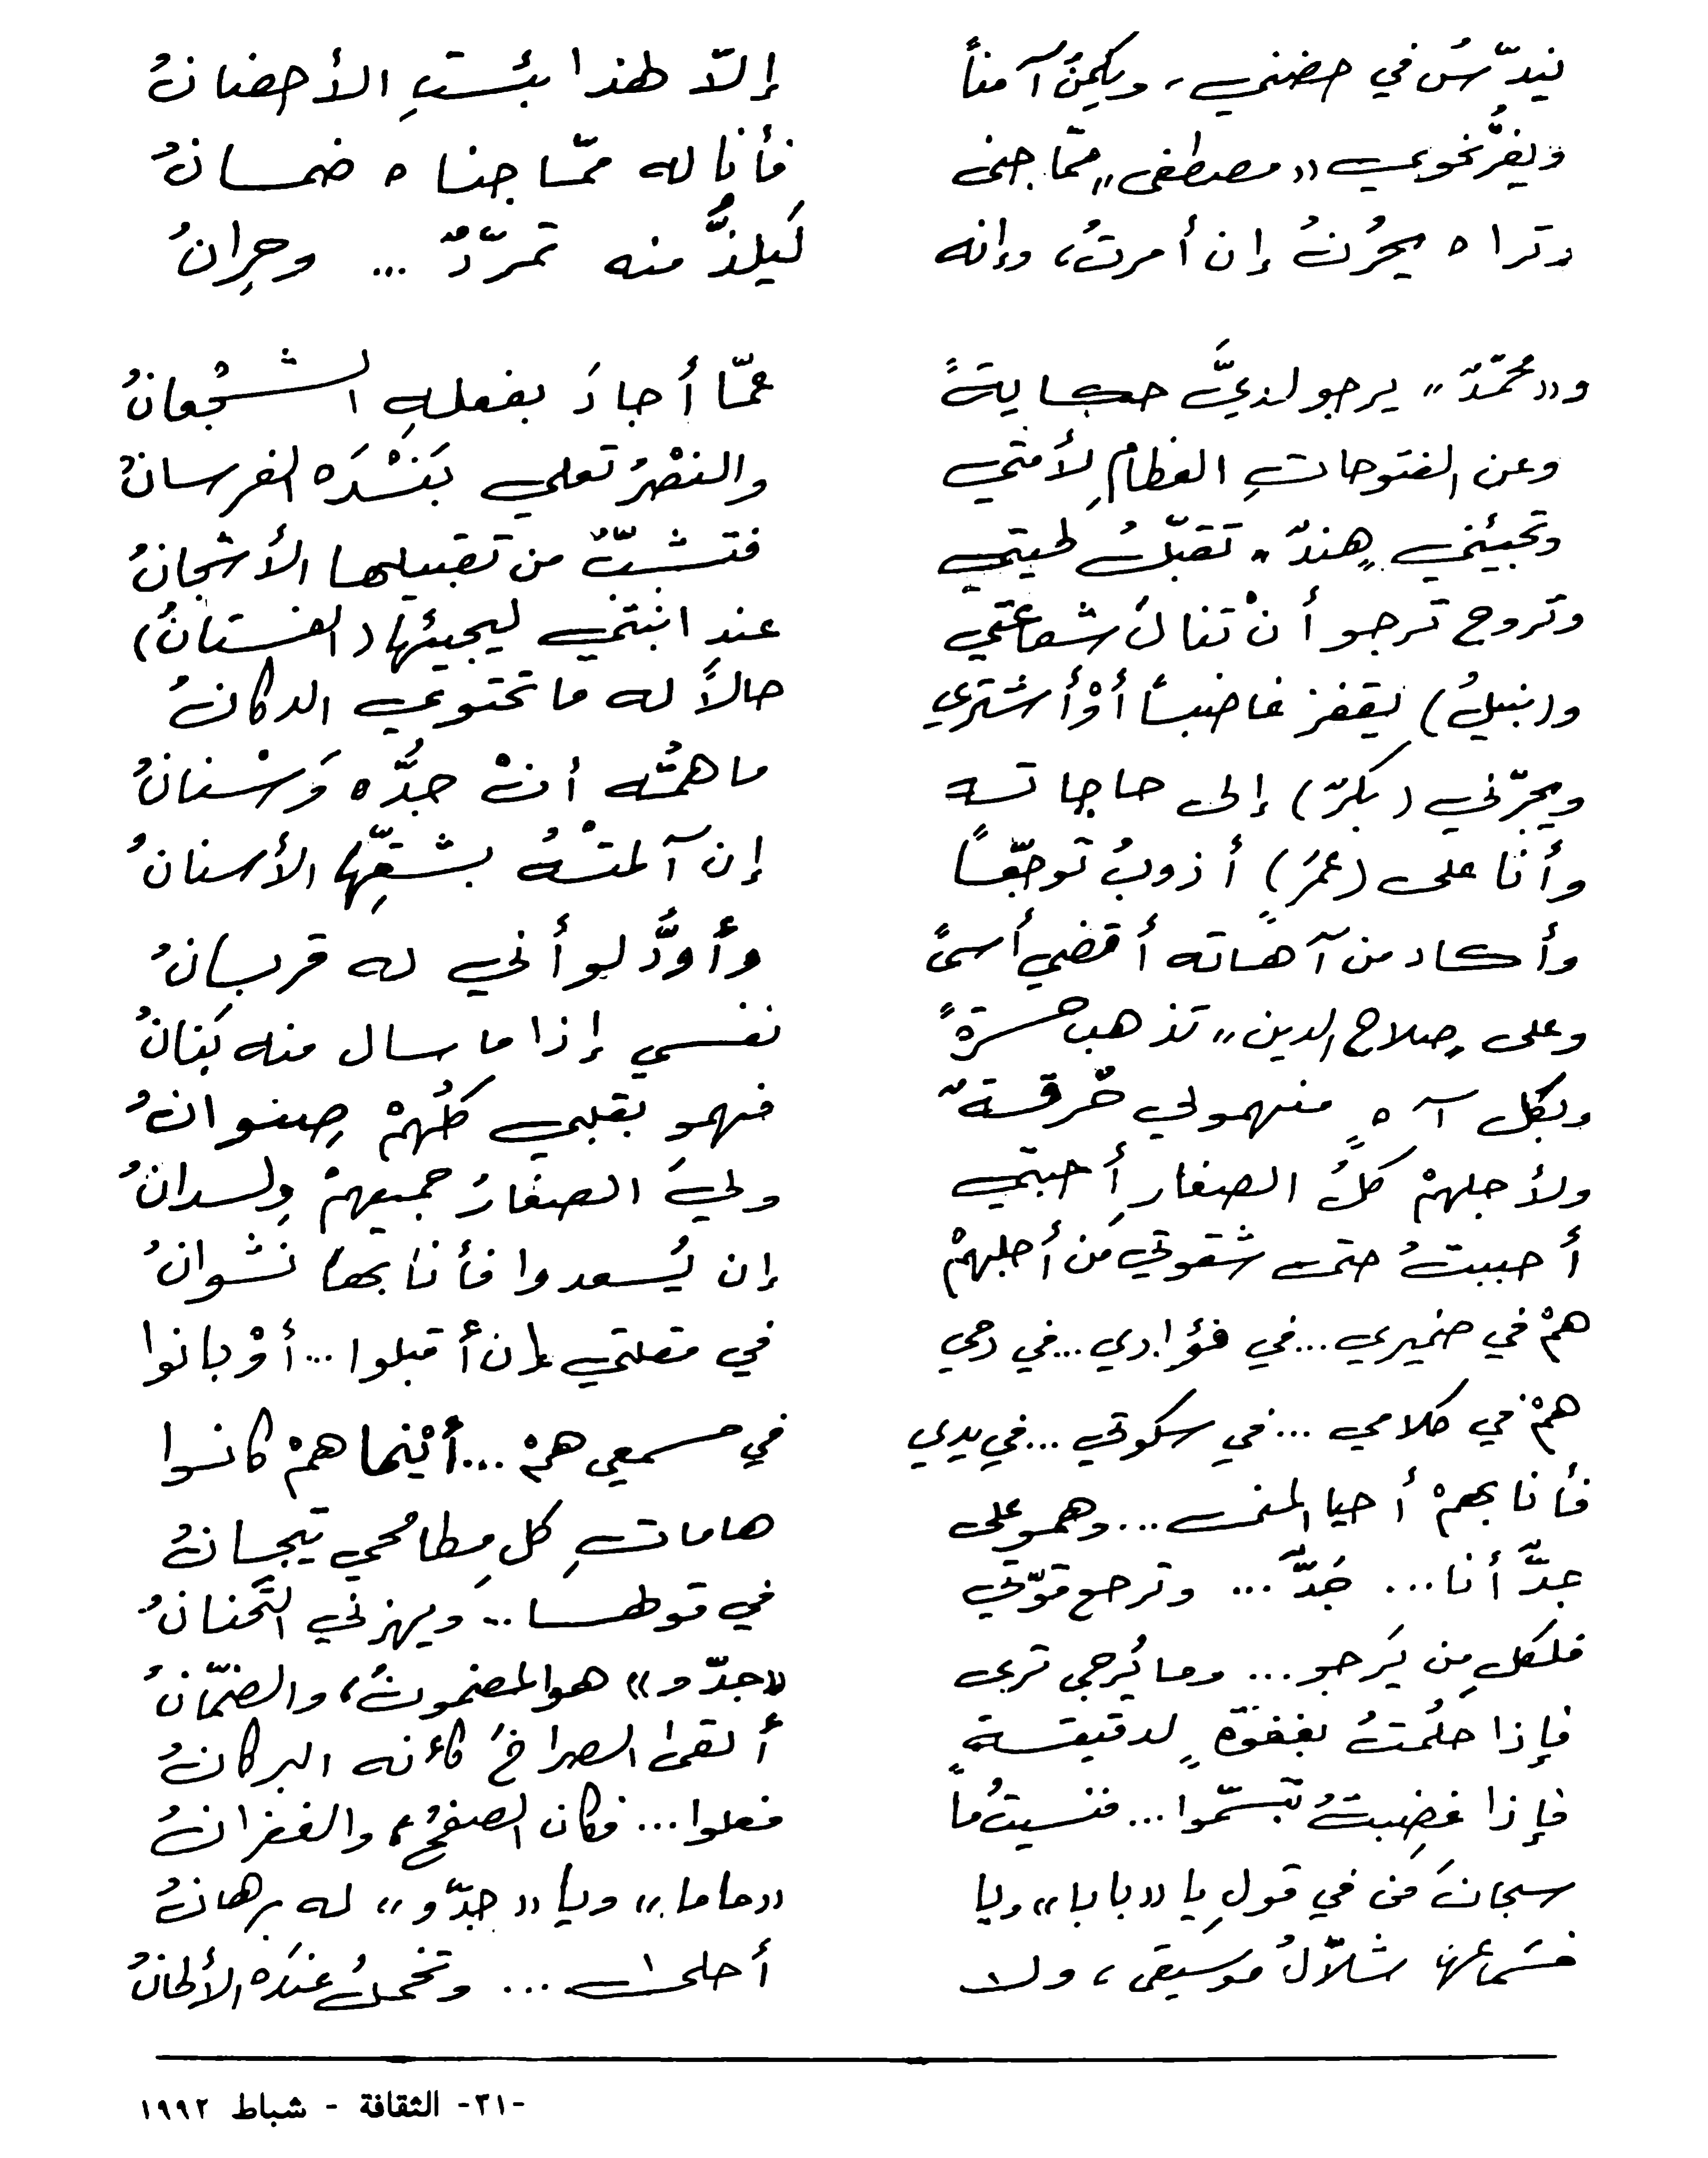 فيندسُّ في حضني، ويكمنُ آمناً إلاّ لهذا بئستِ الأحضانُ
ويفرُّ نحوي «مصطفى» ممّا جنى فأنا له ممّا جناه ضمانُ
وتراه يحرُنُ إن أمرتُ، وإنه لَيلذُّ منه تمرّدٌ ... وحِرانُ
و«محمّدٌ» يرجو لديَّ حكايةً عمّا أجادَ بفعلهِ الشجْعانُ
وعن الفتوحاتِ العظامِ لأمتي والنصْرُ تعلي بَنْدَه الفرسانُ
وتجيئني «هندٌ» تقبّلُ لحيتي فتشبّ من تقبيلها الأشجانُ
وتروح ترجو أنْ تنال شفاعتي عند ابنتي ليجيئها (الفستانُ)
و(نبيلُ) يقفز غاضباً أوْ أشتري حالاً له ما تحتوي الدكانُ
ويجرّني (بكرٌ) إلى حاجاته ما همُّه أنْ جدُّه وَسْنانُ
وأنا على (عمرٍ) أذوبُ توجّعاً إن آلمتْهُ بشقِّها الأسنانُ
وأكاد من آهاته أقضي أسىً وأودُّ لو أني له قربانُ
وعلى «صلاح الدين» تذهب حسرةً نفسي إذا ما سال منه بَنانُ
وبكل آهٍ منهمو لي حُرقةٌ فهمو بقلبي كلُّهمْ صِنوانُ
ولأجلهمْ كلُّ الصغارِ أحبتي وليَ الصغارُ جميعهمْ وِلدانُ
أحببتُ حتى شقوتي مَن أجلهمْ إن يُسعدوا فأنا بها نشوانُ
همْ في ضميري ... في فؤادي ... في دمي في مقلتي إن أقبلوا ... أوْ بانوا
همْ في كلامي ... في سكوتي ... في يدي في مسمعي همْ ... أيْنما همْ كانوا
فأنا بهمْ أحيا المنى ... وهمو على هاماتِ كل مطامحي تيجانُ
جدٌّ أنا ... جَدٌّ ... وترجع قوّتي في قولها .. ويهزني التَّحنانُ
فلكلِ مَن يَرجو ... وما يُرجى ترى «جدّو» هو المضمونُ، والضمّانُ
فإذا حلُمتُ بغفوةٍ لدقيقةٍ ألقى الصراخَ كأنه البركانُ
فإذا غضِبتُ تبسّموا ... فنسيتُ ما فعلوا ... فكان الصفحُ، والغفرانُ
سبحانَ مَن في قولِ يا «بابا» ويا «ماما» ويا «جدّو» له برهانُ
فسَماعها شلاّلُ موسيقى، ولا أحلى ... وتخجلُ عندَه الألحانُ
-٣١- الثقافة - شباط ١٩٩٢